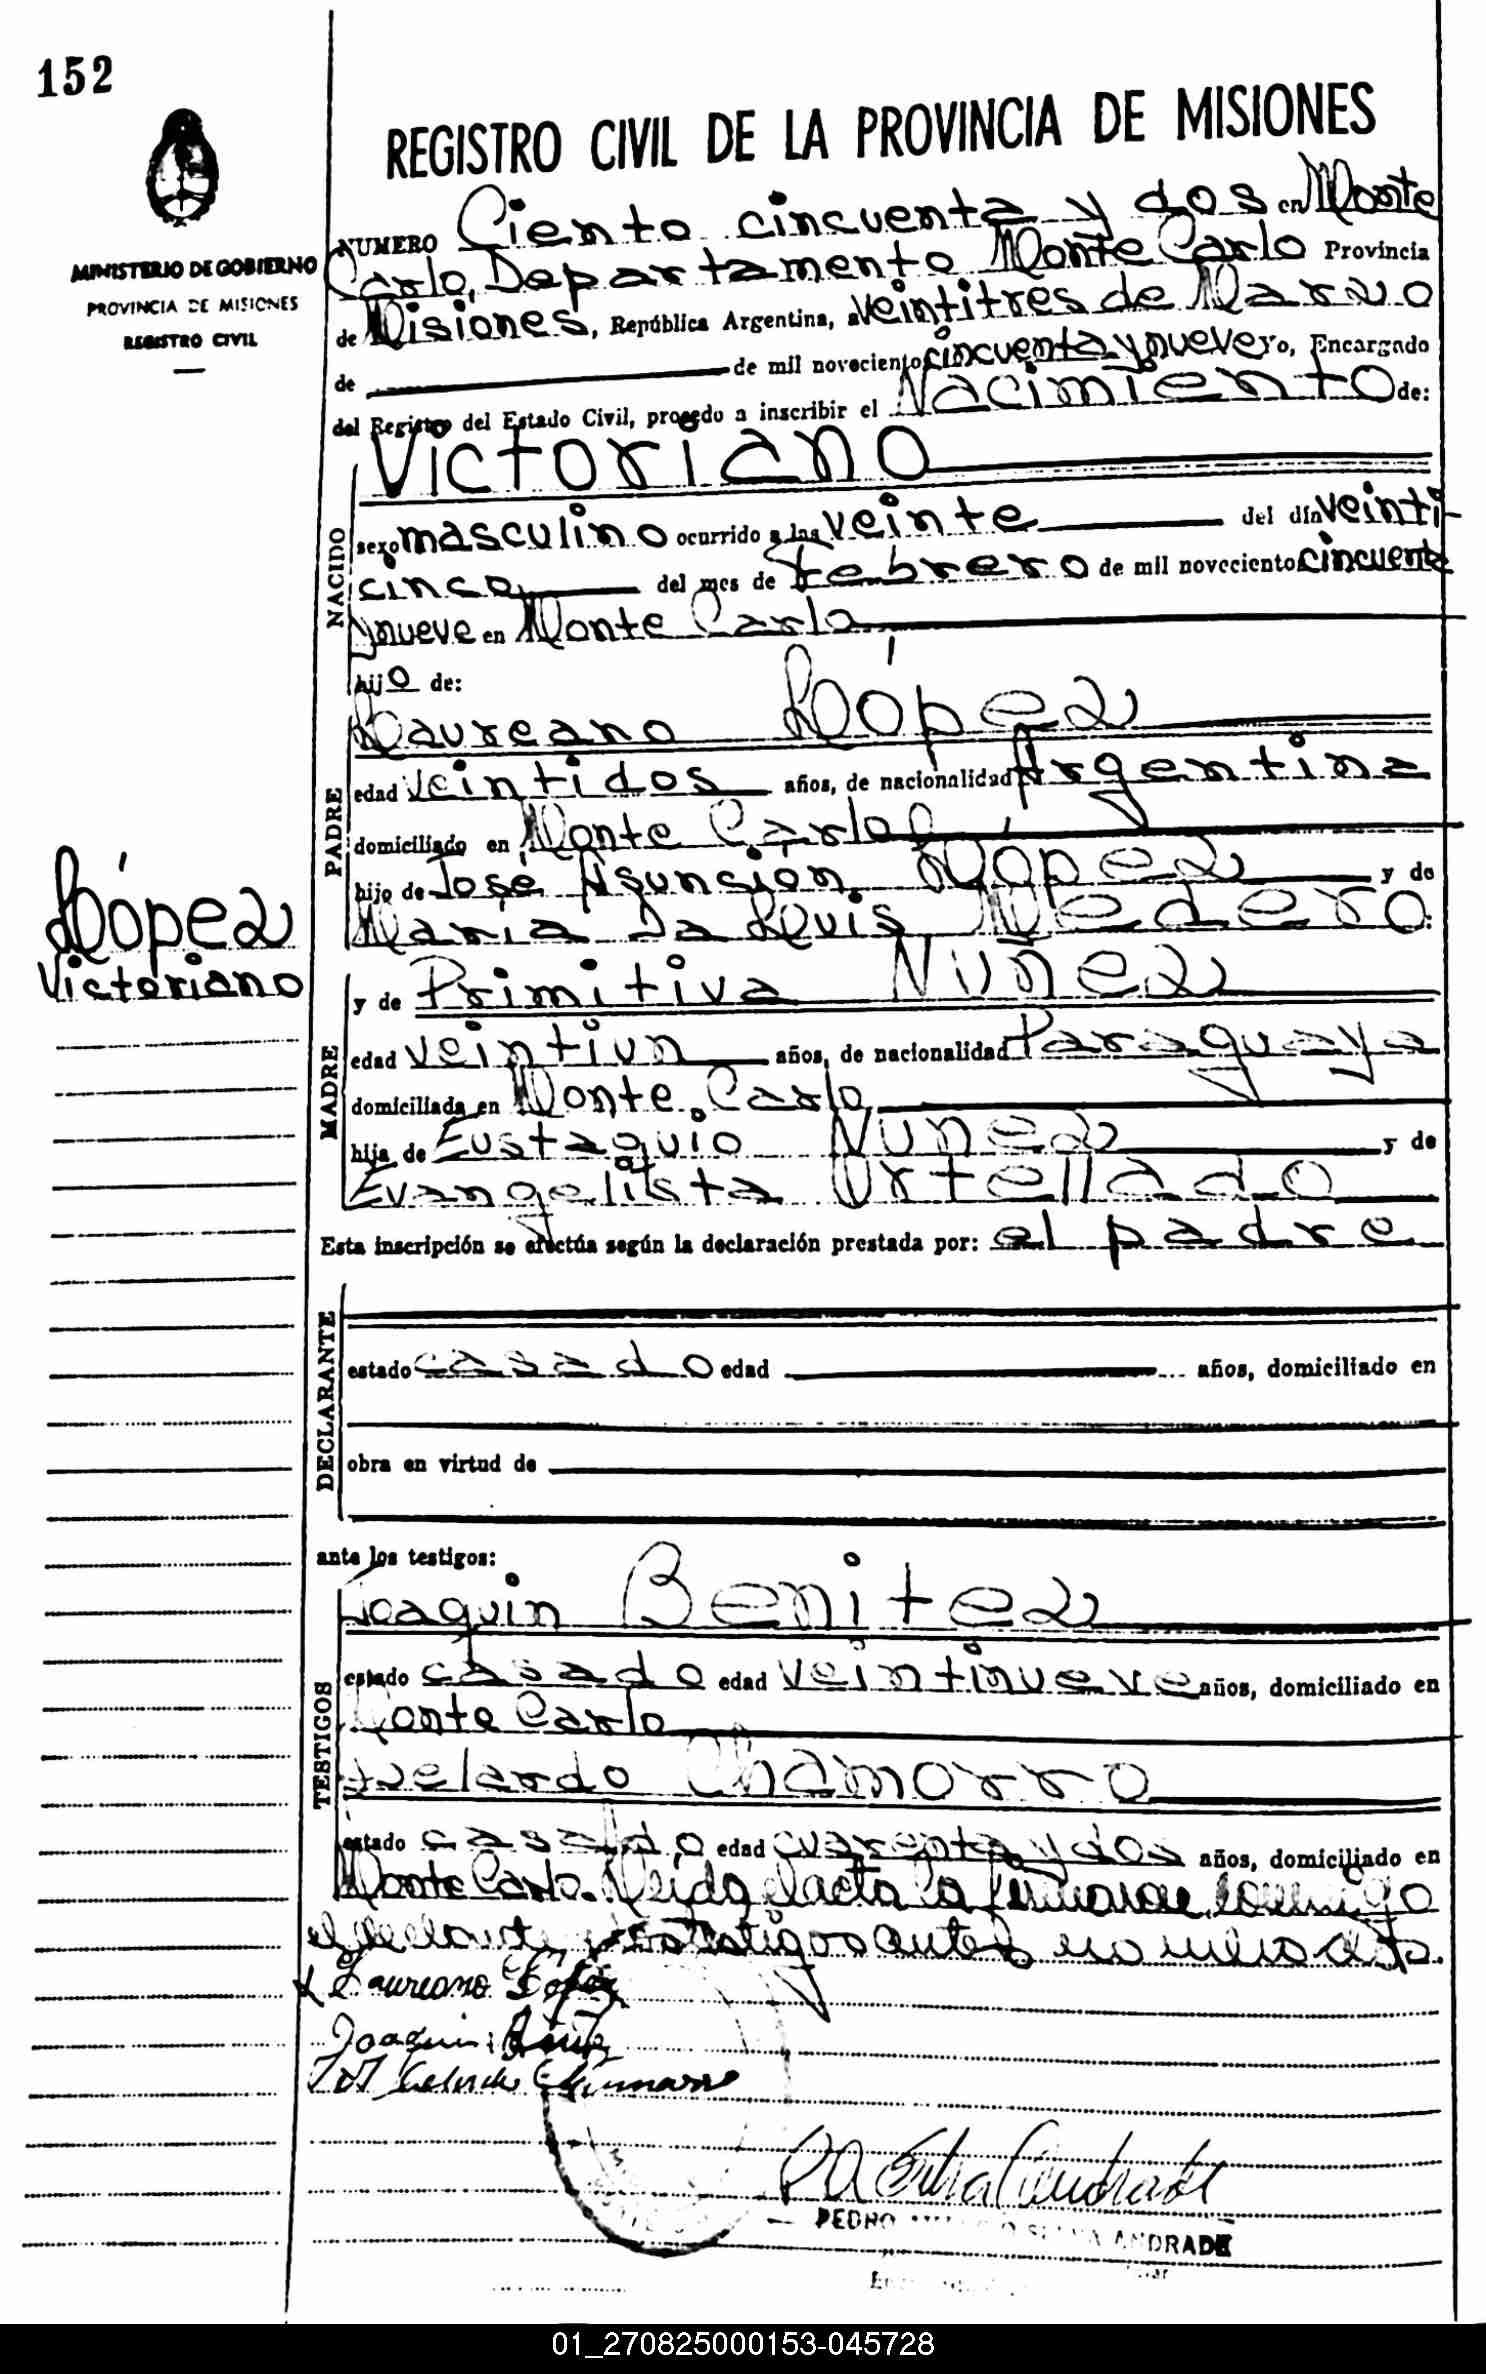 152
REGISTRO CIVIL DE LA PROVINCIA DE MISIONES
MINISTERIO DE GOBIERNO
PROVINCIA DE MISIONES
REGISTRO CIVIL
NUMERO Ciento cincuenta y dos en Monte
Carlo, Departamento Monte Carlo Provincia
de Misiones, República Argentina, a veintitres de Marzo
de de mil noveciento cincuenta y nueve yo, Encargado
del Registro del Estado Civil, procedo a inscribir el Nacimiento de:
NACIDO
Victoriano
sexo masculino ocurrido a las veinte del día veinti
cinco del mes de Febrero de mil noveciento cincuenta
y nueve en Monte Carlo
hijo de:
PADRE
Laureano López
edad veintidos años, de nacionalidad Argentina
domiciliado en Monte Carlo
hijo de José Asunción López y de
Maria Da Luis Medero
López
Victoriano
MADRE
y de Primitiva Nuñez
edad veintiun años, de nacionalidad Paraguaya
domiciliada en Monte Carlo
hija de Eustaquio Nunez y de
Evangelista Urtellado
Esta inscripción se efectúa según la declaración prestada por: el padre
DECLARANTE
estado casado edad años, domiciliado en
obra en virtud de
ante los testigos:
TESTIGOS
Joaquin Benitez
estado casado edad veintinueve años, domiciliado en
Monte Carlo
Chamorro
estado casado edad cuarenta y dos años, domiciliado en
Monte Carlo. Leida el acta la firman conmigo
el declarante y los testigos antes
Laureano López
Joaquin Benitez
PEDRO SILVA ANDRADE
01_270825000153-045728